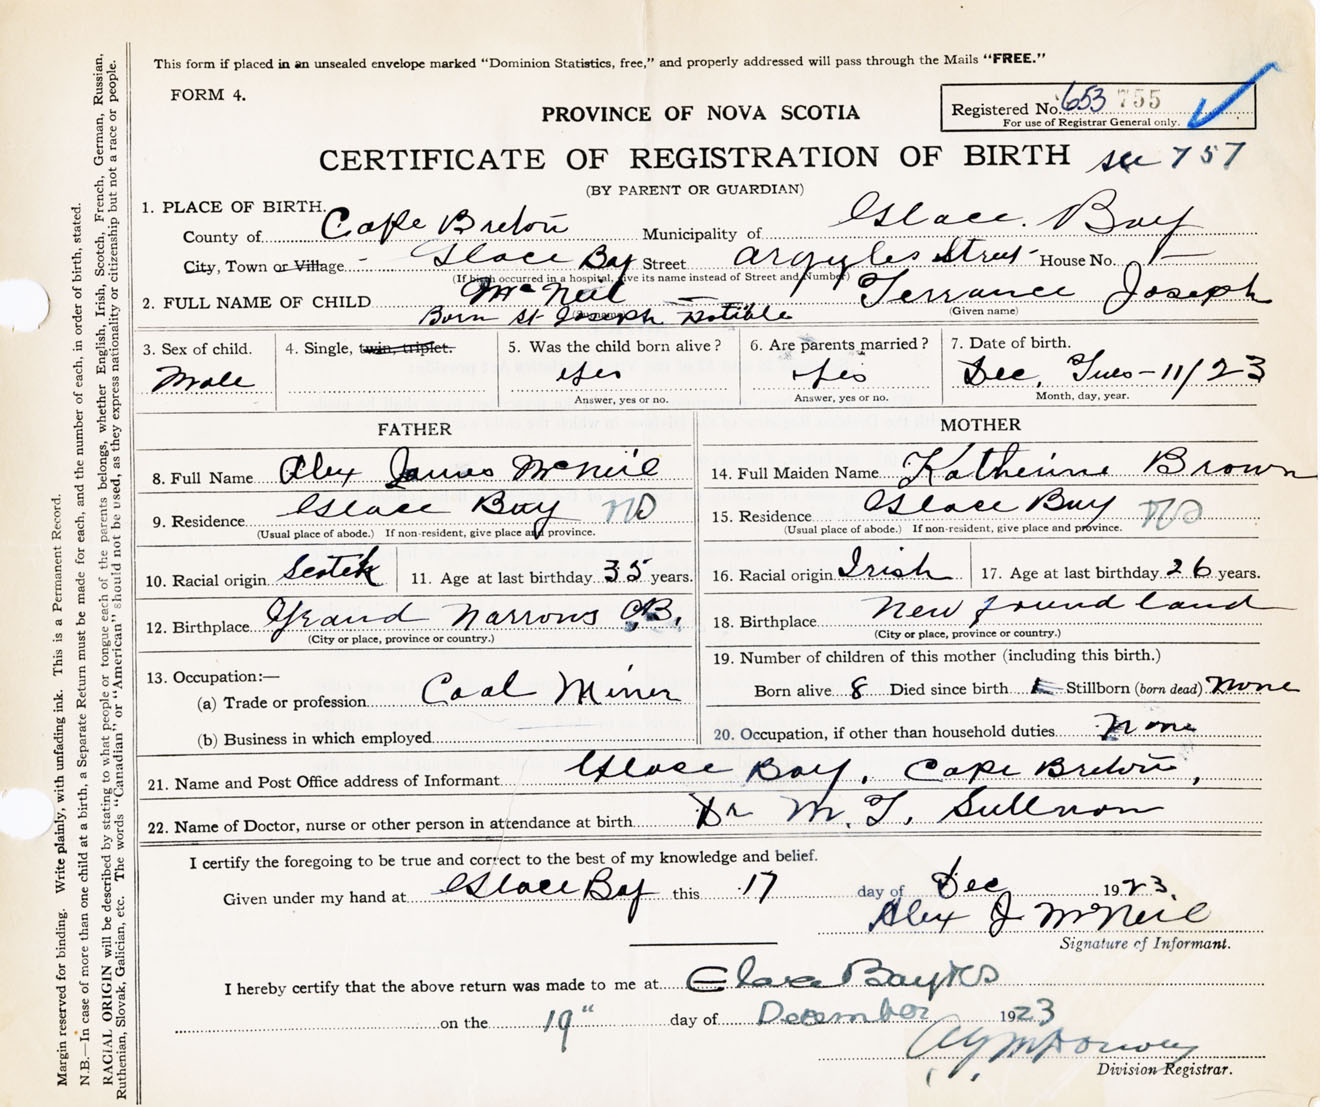 This form if placed in an unsealed envelope marked "Dominion Statistics, free," and properly addressed will pass through the Mails "FREE."
FORM 4.
PROVINCE OF NOVA SCOTIA
Registered No. 653 755
For use of Registrar General only.
CERTIFICATE OF REGISTRATION OF BIRTH see 757
(BY PARENT OR GUARDIAN)
1. PLACE OF BIRTH.
County of Cape Breton Municipality of Glace Bay
City, Town or Village Glace Bay Street Argyles Street House No. —
(If birth occurred in a hospital, give its name instead of Street and Number)
2. FULL NAME OF CHILD McNeil — Terrance Joseph
(Given name)
Born St Joseph
3. Sex of child. 4. Single, twin, triplet. 5. Was the child born alive? 6. Are parents married? 7. Date of birth.
Male Yes Yes Dec, Tues - 11/23
Answer, yes or no. Answer, yes or no. Month, day, year.
FATHER MOTHER
8. Full Name Alex James McNeil 14. Full Maiden Name Katherine Brown
9. Residence Glace Bay NS 15. Residence Glace Bay NS
(Usual place of abode.) If non-resident, give place and province. (Usual place of abode.) If non-resident, give place and province.
10. Racial origin Scotch 11. Age at last birthday 35 years. 16. Racial origin Irish 17. Age at last birthday 26 years.
12. Birthplace Grand Narrows C.B. 18. Birthplace New foundland
(City or place, province or country.) (City or place, province or country.)
19. Number of children of this mother (including this birth.)
13. Occupation:—
(a) Trade or profession Coal Miner Born alive 8 Died since birth Stillborn (born dead) None
(b) Business in which employed 20. Occupation, if other than household duties None
21. Name and Post Office address of Informant Glace Bay, Cape Breton,
22. Name of Doctor, nurse or other person in attendance at birth Dr M. T. Sullivan
I certify the foregoing to be true and correct to the best of my knowledge and belief.
Given under my hand at Glace Bay this 17 day of Dec 1923.
Alex J McNeil
Signature of Informant.
I hereby certify that the above return was made to me at Glace Bay NS
on the 19" day of December 1923
Division Registrar.
Margin reserved for binding. Write plainly, with unfading ink. This is a Permanent Record.
N.B.—In case of more than one child at a birth, a Separate Return must be made for each, and the number of each, in order of birth, stated.
RACIAL ORIGIN will be described by stating to what people or tongue each of the parents belongs, whether English, Irish, Scotch, French, German, Russian,
Ruthenian, Slovak, Galician, etc. The words "Canadian" or "American" should not be used, as they express nationality or citizenship but not a race or people.